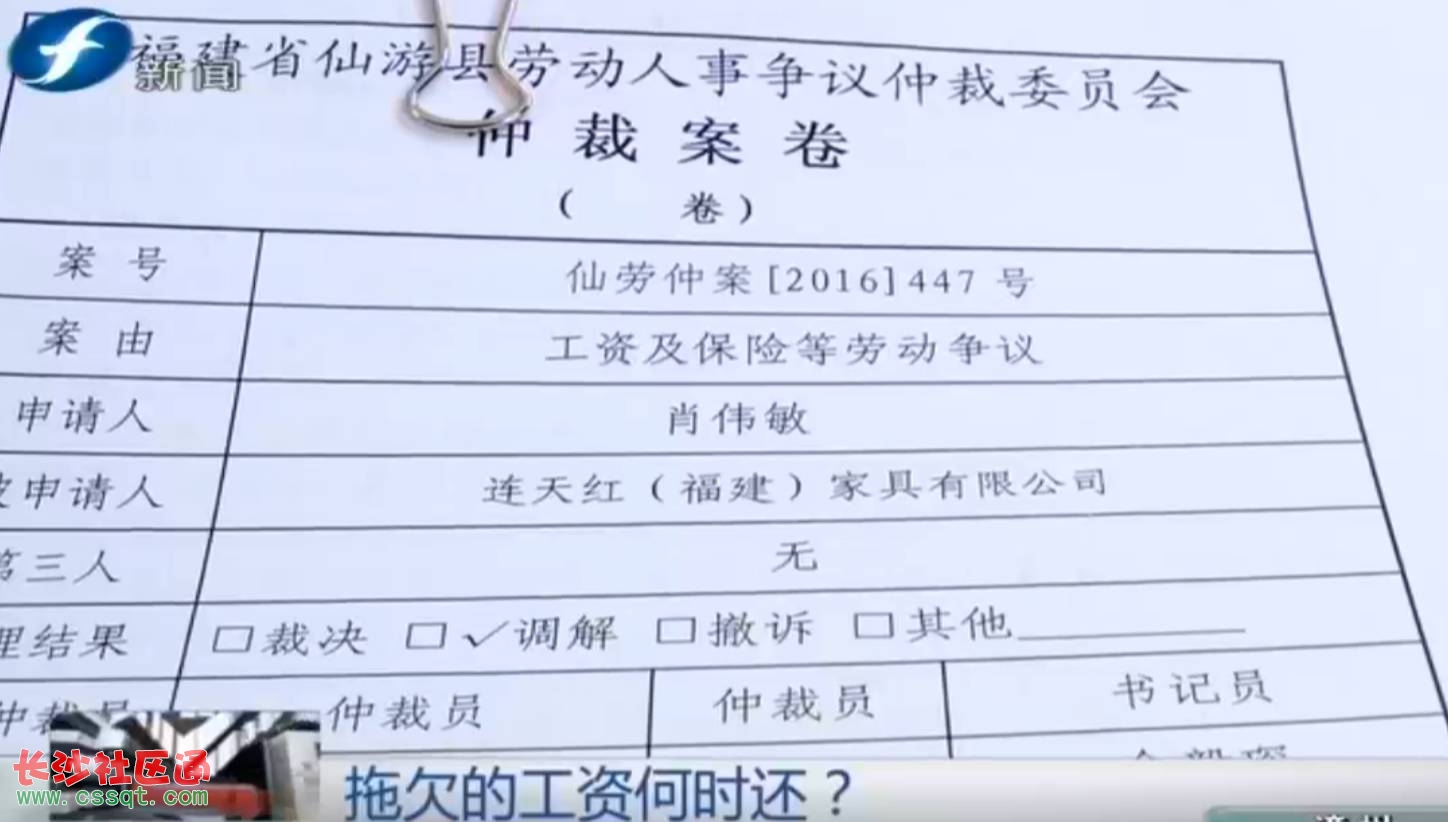 福建省仙游县劳动人事争议仲裁委员会
新闻
仲裁案卷
( 卷)
案号 仙劳仲案[2016]447 号
案由 工资及保险等劳动争议
申请人 肖伟敏
被申请人 连天红(福建)家具有限公司
第三人 无
理结果 □裁决 □✓调解 □撤诉 □其他
仲裁员 仲裁员 仲裁员 书记员
长沙社区通
www.cssqt.com
拖欠的工资何时还?
漳州